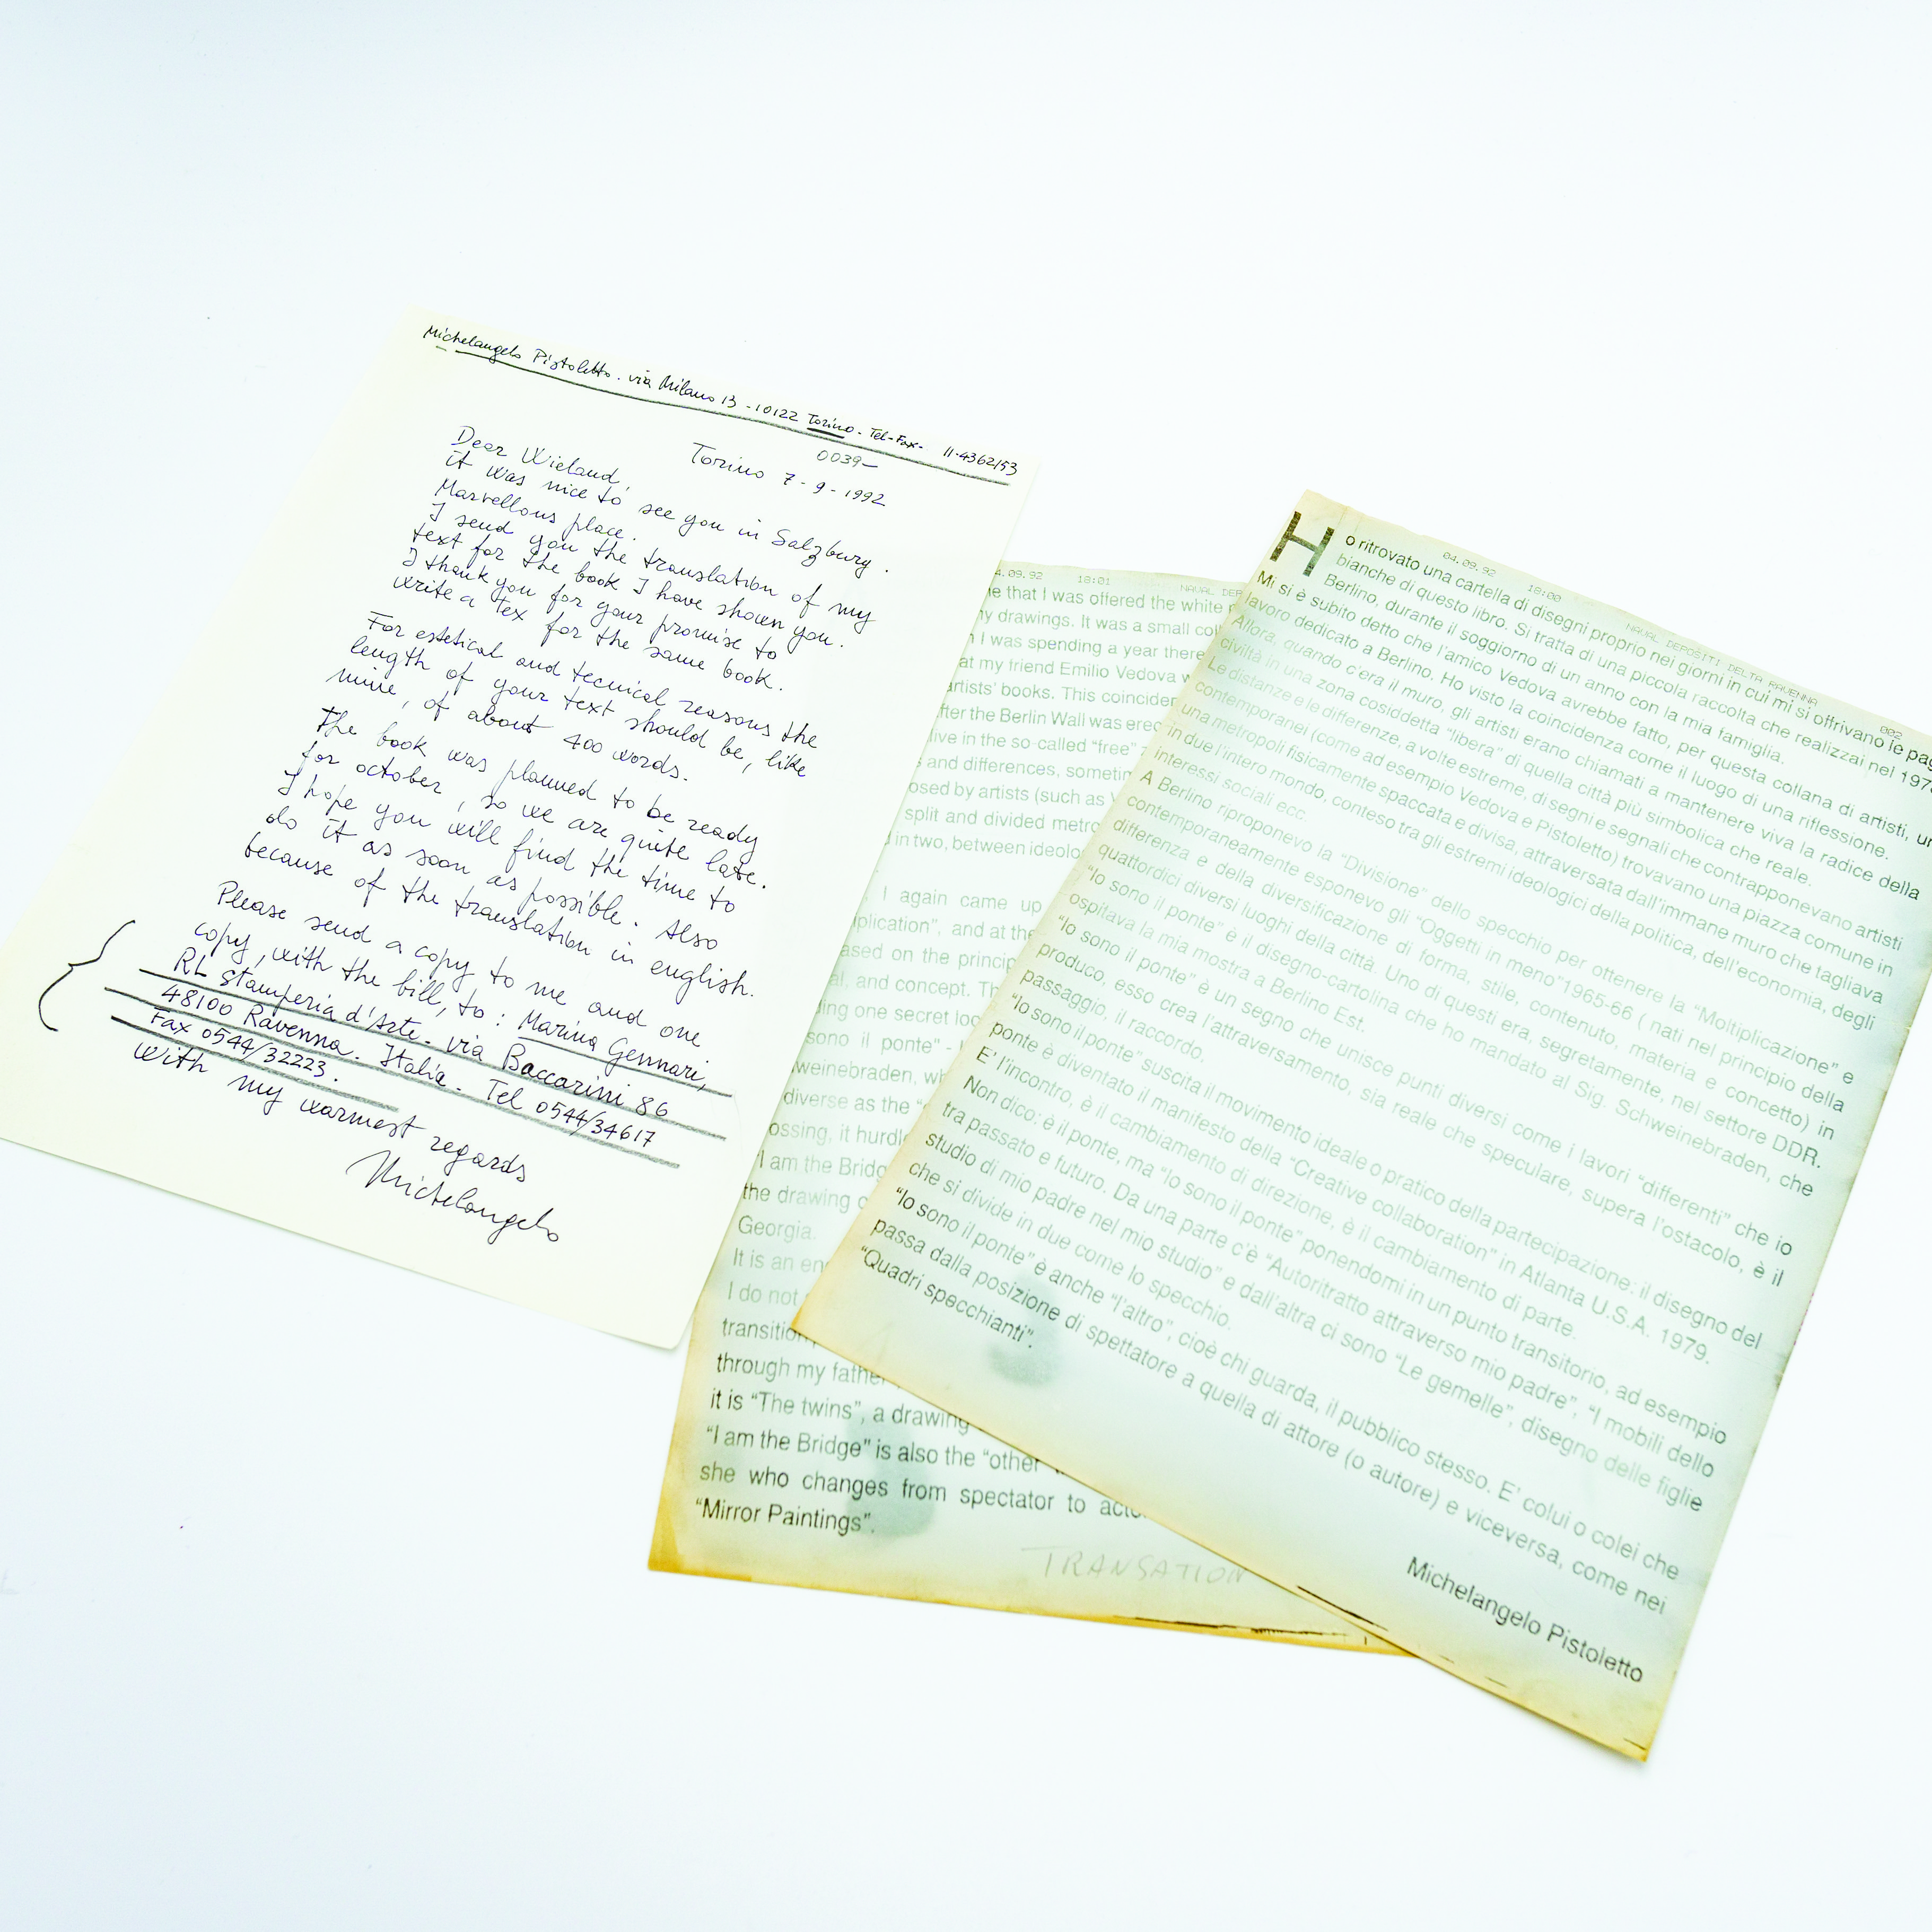 Michelangelo Pistoletto. via Milano 13 - 10122 Torino - Tel-Fax- 11-4362153
0039-
Torino 7-9-1992
Dear Wieland,
it was nice to see you in Salzburg.
Marvellous place.
I send you the translation of my
text for the book I have shown you.
I thank you for your promise to
write a tex for the same book.
For estetical and tecnical reasons the
length of your text should be, like
mine, of about 400 words.
The book was planned to be ready
for october, so we are quite late.
I hope you will find the time to
do it as soon as possible. Also
because of the translation in english.
Please send a copy to me and one
copy, with the bill, to: Marina Gennari,
RL Stamperia d'Arte - via Baccarini 86
48100 Ravenna. Italia - Tel 0544/34617
Fax 0544/32223.
With my warmest regards
Michelangelo
4.09.92 18:01 NAVAL DEP
e that I was offered the white
ny drawings. It was a small coll
I was spending a year there
at my friend Emilio Vedova w
artists' books. This coinciden
fter the Berlin Wall was erec
live in the so-called "free"
and differences, sometim
osed by artists (such as
split and divided metro
in two, between ideolo
I again came up
iplication", and at the
ased on the princip
al, and concept. Th
ing one secret loc
sono il ponte" -
weinebraden, wh
diverse as the "
ossing, it hurdl
"I am the Bridg
the drawing o
Georgia.
It is an en
I do not
transition
through my father
it is "The twins", a drawing
"I am the Bridge" is also the "other
she who changes from spectator to acto
"Mirror Paintings".
TRANSATION
04.09.92 18:00 NAVAL DEPOSITI DELTA RAVENNA 002
Ho ritrovato una cartella di disegni proprio nei giorni in cui mi si offrivano le pag
bianche di questo libro. Si tratta di una piccola raccolta che realizzai nel 197
Berlino, durante il soggiorno di un anno con la mia famiglia.
Mi si è subito detto che l'amico Vedova avrebbe fatto, per questa collana di artisti, un
lavoro dedicato a Berlino. Ho visto la coincidenza come il luogo di una riflessione.
Allora, quando c'era il muro, gli artisti erano chiamati a mantenere viva la radice della
civiltà in una zona cosiddetta "libera" di quella città più simbolica che reale.
Le distanze e le differenze, a volte estreme, di segni e segnali che contrapponevano artisti
contemporanei (come ad esempio Vedova e Pistoletto) trovavano una piazza comune in
una metropoli fisicamente spaccata e divisa, attraversata dall'immane muro che tagliava
in due l'intero mondo, conteso tra gli estremi ideologici della politica, dell'economia, degli
interessi sociali ecc.
A Berlino riproponevo la "Divisione" dello specchio per ottenere la "Moltiplicazione" e
contemporaneamente esponevo gli "Oggetti in meno" 1965-66 ( nati nel principio della
differenza e della diversificazione di forma, stile, contenuto, materia e concetto) in
quattordici diversi luoghi della città. Uno di questi era, segretamente, nel settore DDR.
"Io sono il ponte" è il disegno-cartolina che ho mandato al Sig. Schweinebraden, che
ospitava la mia mostra a Berlino Est.
"Io sono il ponte" è un segno che unisce punti diversi come i lavori "differenti" che io
produco, esso crea l'attraversamento, sia reale che speculare, supera l'ostacolo, è il
passaggio, il raccordo.
"Io sono il ponte" suscita il movimento ideale o pratico della partecipazione: il disegno del
ponte è diventato il manifesto della "Creative collaboration" in Atlanta U.S.A. 1979.
E' l'incontro, è il cambiamento di direzione, è il cambiamento di parte.
Non dico: è il ponte, ma "Io sono il ponte" ponendomi in un punto transitorio, ad esempio
tra passato e futuro. Da una parte c'è "Autoritratto attraverso mio padre", "I mobili dello
studio di mio padre nel mio studio" e dall'altra ci sono "Le gemelle", disegno delle figlie
che si divide in due come lo specchio.
"Io sono il ponte" è anche "l'altro", cioè chi guarda, il pubblico stesso. E' colui o colei che
passa dalla posizione di spettatore a quella di attore (o autore) e viceversa, come nei
"Quadri specchianti".
Michelangelo Pistoletto